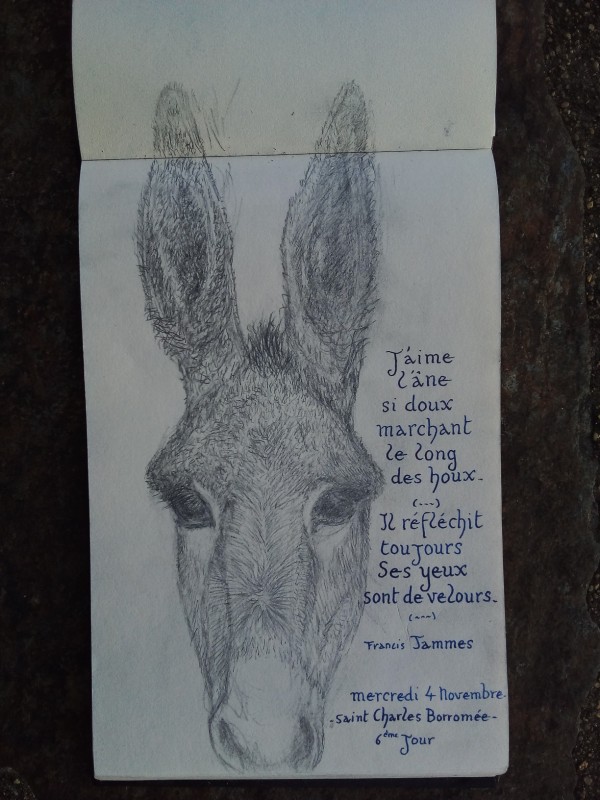 J'aime
l'âne
si doux
marchant
le long
des houx.
(---)
Il réfléchit
toujours
Ses yeux
sont de velours.
(---)
Francis Jammes
mercredi 4 Novembre
-saint Charles Borromée-
6ème Jour